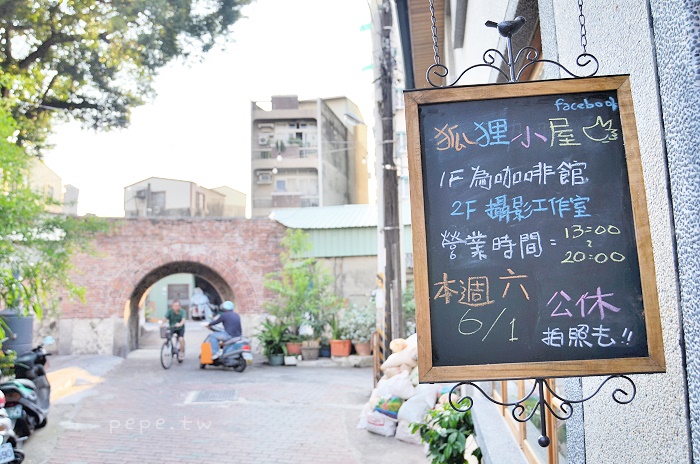 facebook
狐狸小屋
1F 為咖啡館
2F 攝影工作室
營業時間= 13:00
~
20:00
本週六 公休
6/1 拍照去!!
pepe.tw